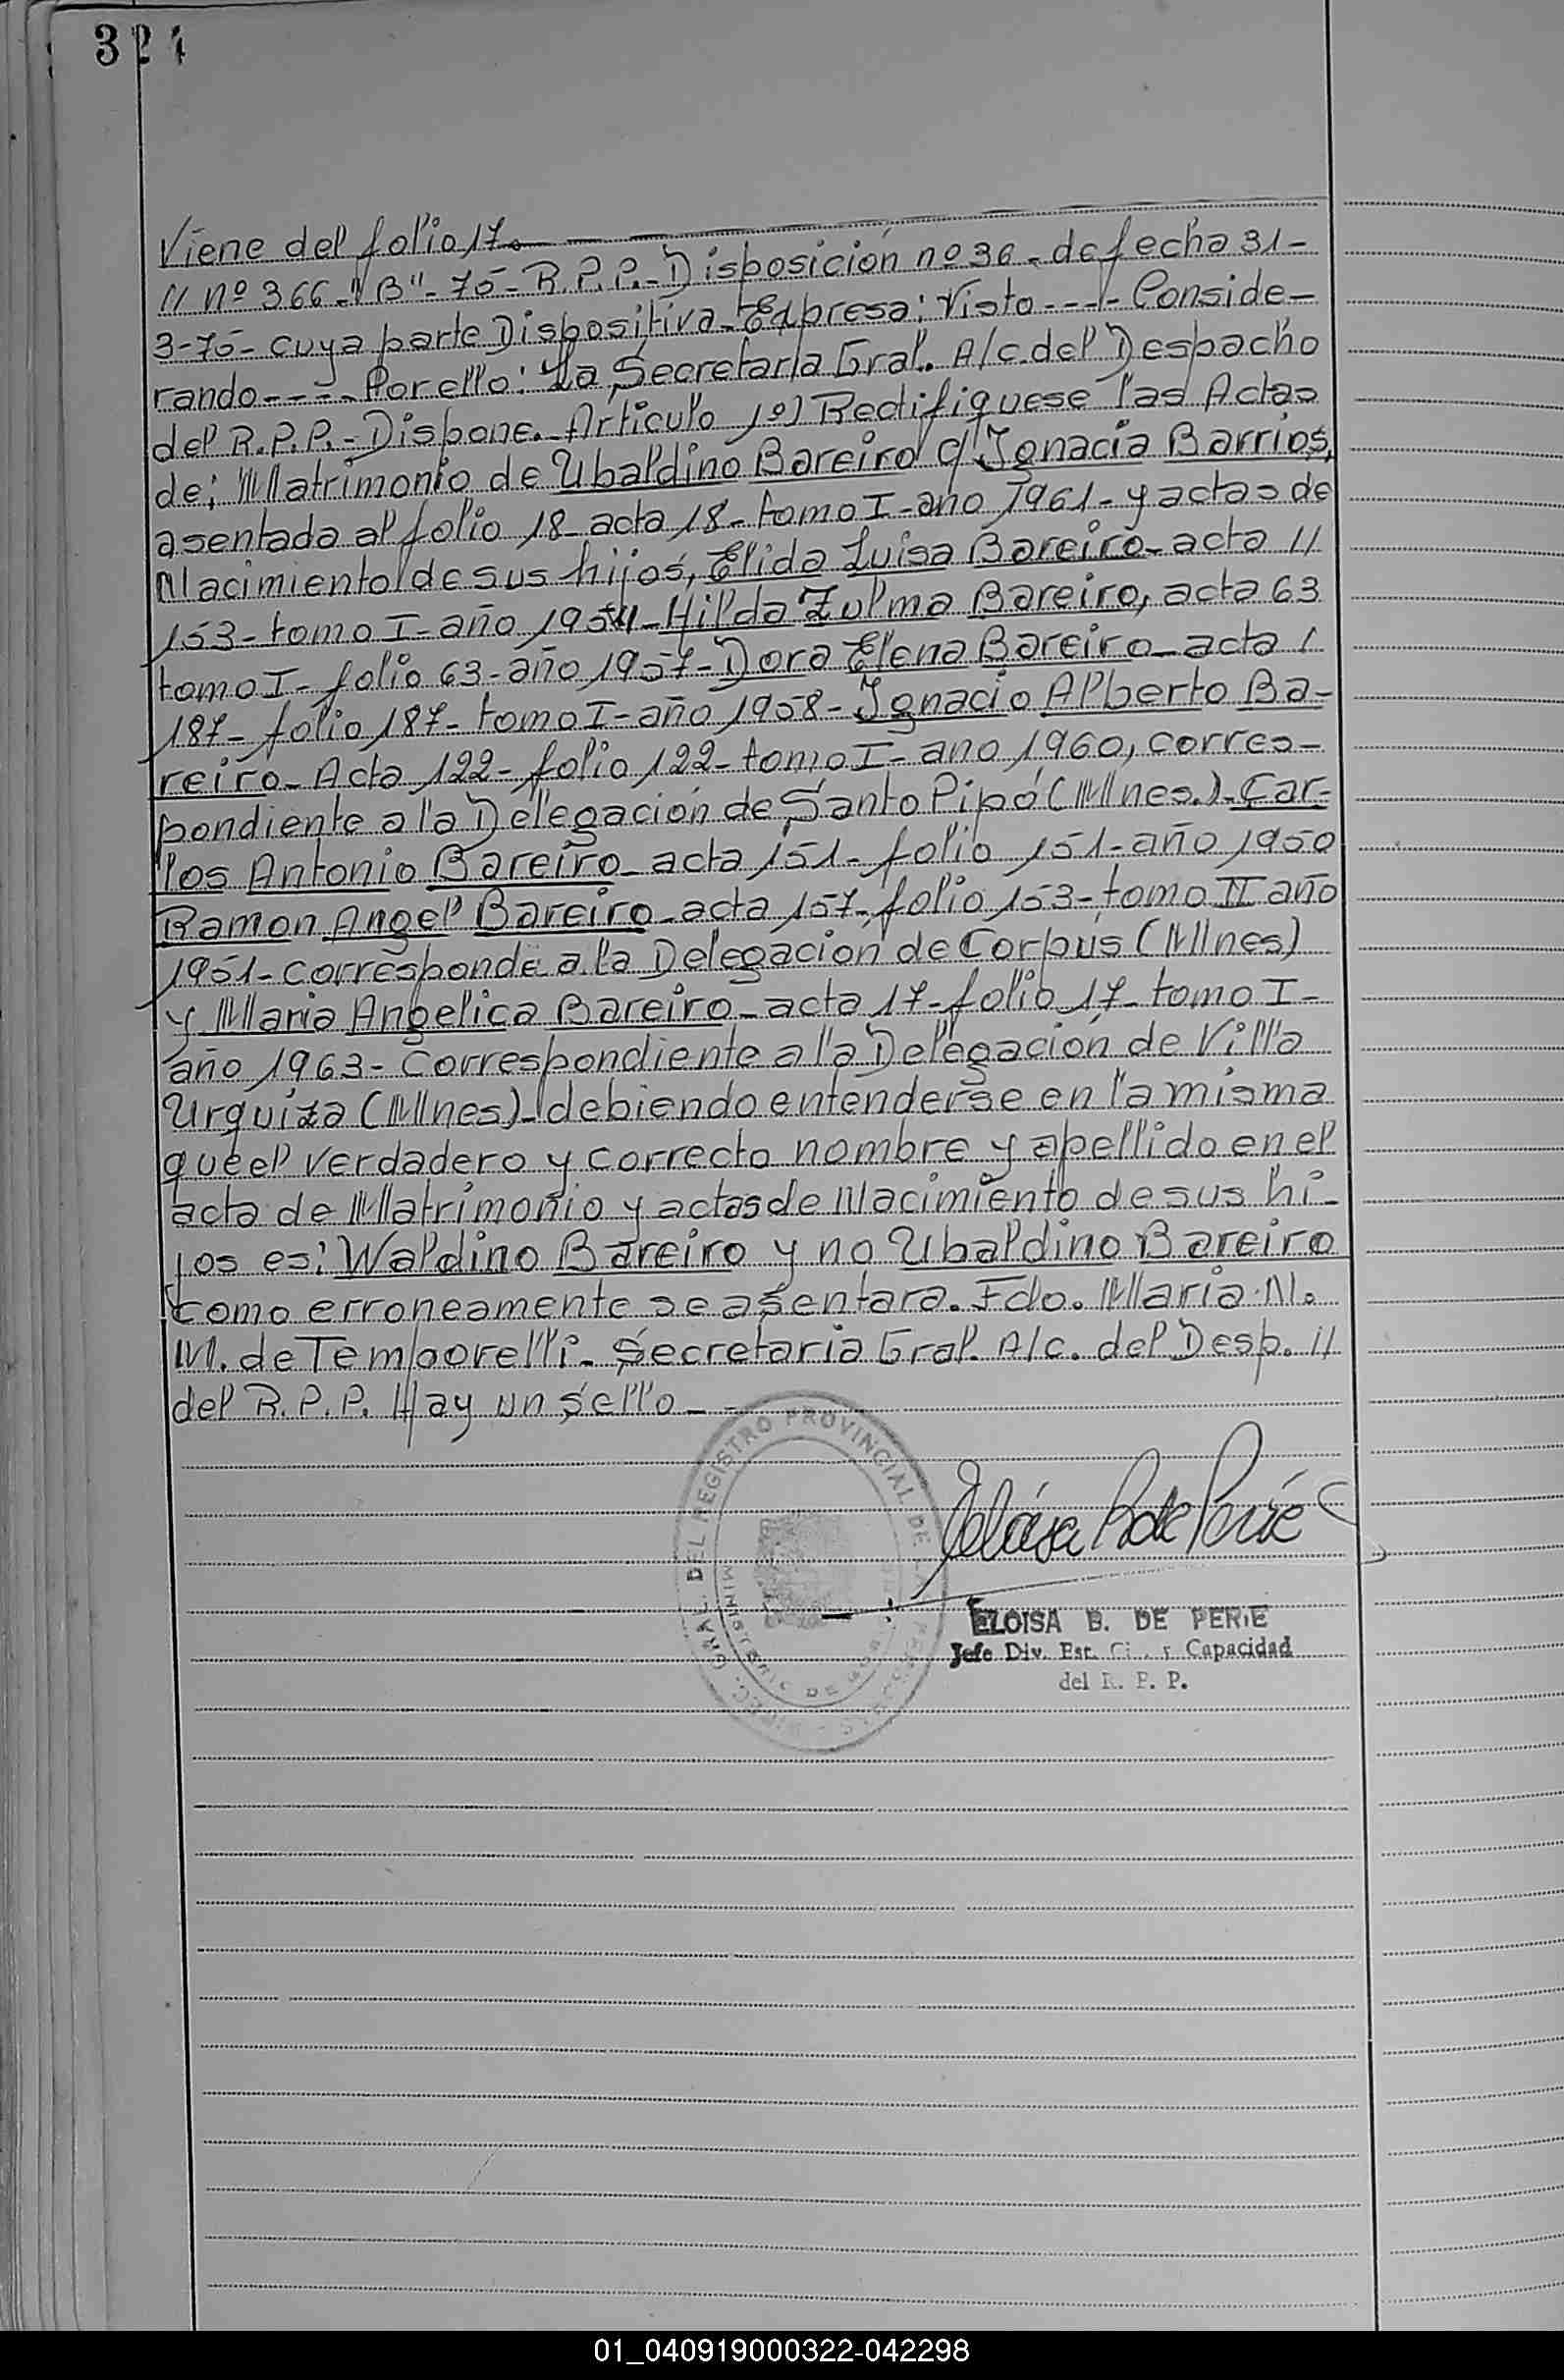 324
Viene del folio 17.
// nº 366-"B"-75-R.P.P.-Disposición nº 36- de fecha 31-
3-75- cuya parte Dispositiva-Expresa: Visto ---- Conside-
rando---- Por ello: La Secretaria Gral. A/c. del Despacho
del R.P.P.-Dispone.-Articulo 1º) Rectifiquese las Actas
de: Matrimonio de Ubaldino Bareiro c/ Ignacia Barrios,
asentada al folio 18-acta 18-tomo I-año 1961-y actas de
Nacimiento de sus hijos, Elida Luisa Bareiro-acta //
153-tomo I-año 1954-Hilda Zulma Bareiro, acta 63
tomo I-folio 63-año 1957-Dora Elena Bareiro-acta /
187-folio 187-tomo I-año 1958-Ignacio Alberto Ba-
reiro-Acta 122-folio 122-tomo I-año 1960, corres-
pondiente a la Delegación de Santo Pipó (Mnes.)-Car-
los Antonio Bareiro-acta 151-folio 151-año 1950
Ramon Angel Bareiro-acta 157-folio 153-tomo II año
1951-corresponde a la Delegación de Corpus (Mnes)
y Maria Angelica Bareiro-acta 17-folio 17-tomo I-
año 1963-Correspondiente a la Delegación de Villa
Urquiza (Mnes)-debiendo entenderse en la misma
que el verdadero y correcto nombre y apellido en el
acta de Matrimonio y actas de Nacimiento de sus hi-
jos es: Waldino Bareiro y no Ubaldino Bareiro
como erroneamente se asentara. Fdo. Maria N.
M. de Temporelli-Secretaria Gral. A/c. del Desp. //
del R.P.P. Hay un sello-
DEL REGISTRO PROVINCIAL DE
ELOISA B. DE PERIE
Jefe Div. Est. Ci. y Capacidad
del R. P. P.
01_040919000322-042298